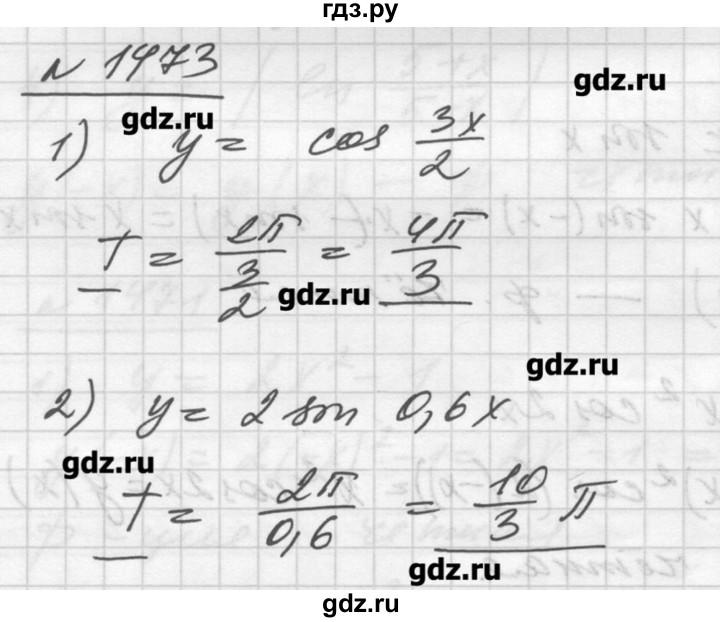 гдз.ру
№ 1473
gdz.ru
gdz.ru
1) y = cos 3x/2
T = 2π/(3/2) = 4π/3
gdz.ru
gdz.ru
2) y = 2 sin 0,6x
gdz.ru
T = 2π/0,6 = 10/3 π
gdz.ru
gdz.ru